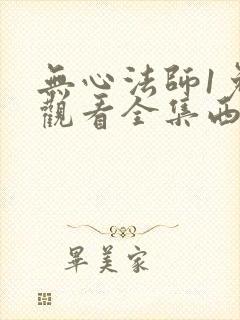 無心法師1免
觀看全集西
畢美家